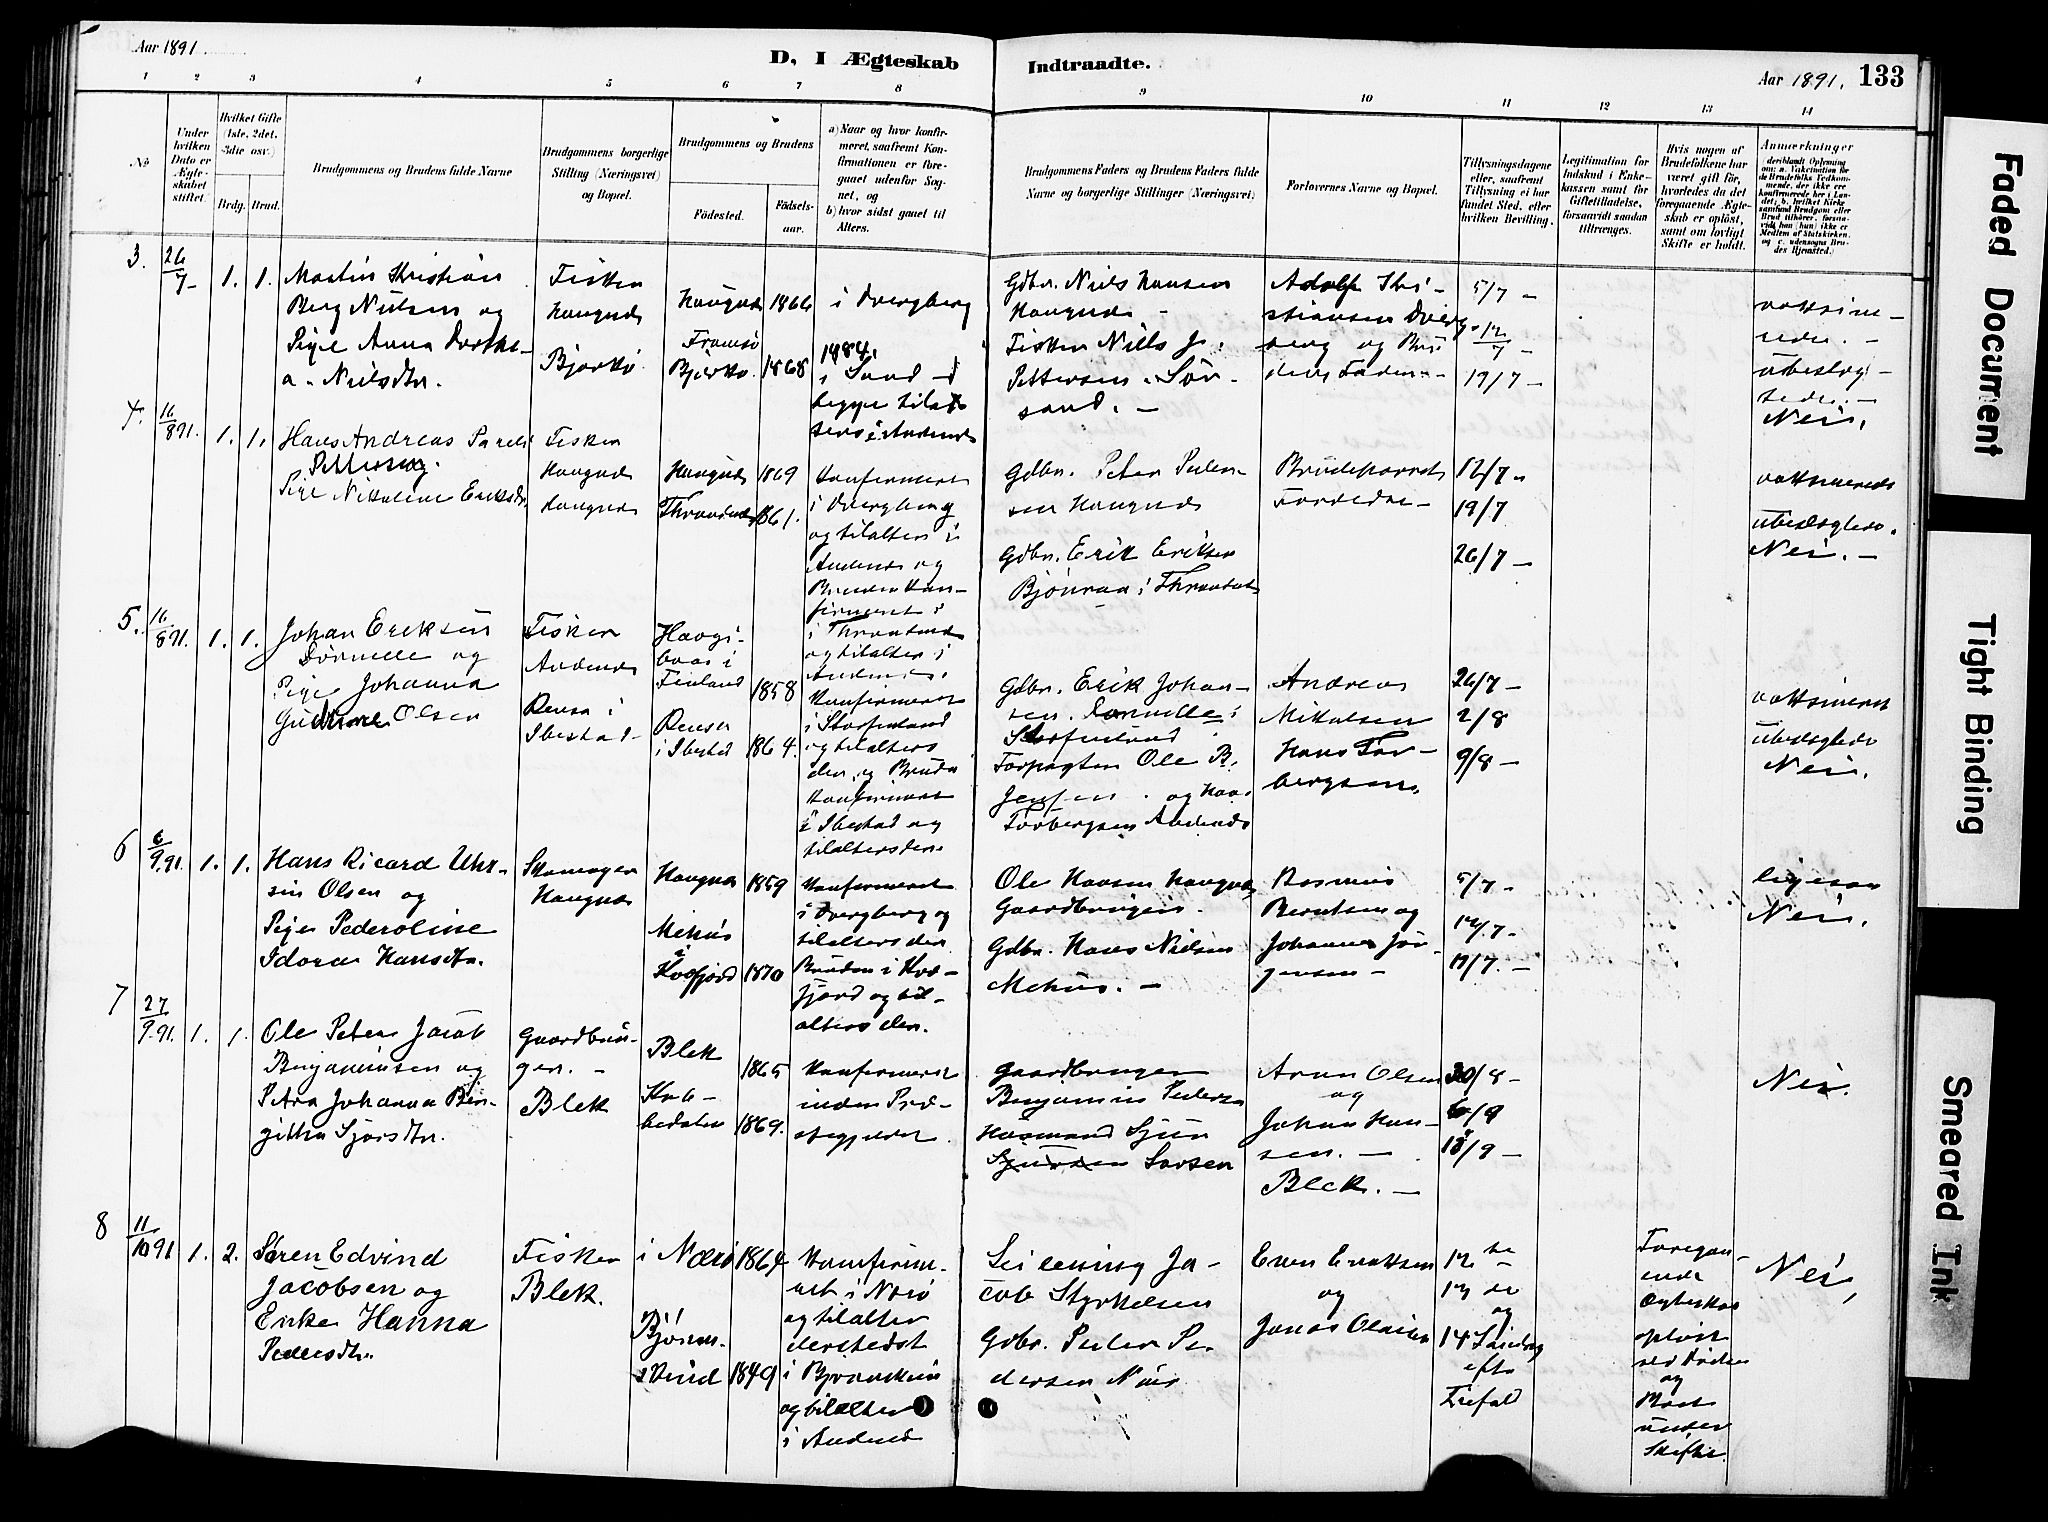 Aar 1891.
D, I Ægteskab
Indtraadte.
Aar 1891.
133
1 2 3 4 5 6 7 8 9 10 11 12 13 14
No
Under hvilken Dato er Ægteskabet stiftet.
Hvilket Gifte (1ste, 2det, 3die osv.)
Brdg.
Brud.
Brudgommens og Brudens fulde Navne
Brudgommens borgerlige Stilling (Næringsvei) og Bopæl.
Brudgommens og Brudens
Födested.
Födsels-aar.
a) Naar og hvor konfirmeret, saafremt Konfirmationen er foregaaet udenfor Sognet, og
b) hvor sidst gaaet til Alters.
Brudgommens Faders og Brudens Faders fulde Navne og borgerlige Stillinger (Næringsvei)
Forlovernes Navne og Bopæl.
Tillysningsdagene eller, saafremt Tillysning ei har fundet Sted, efter hvilken Bevilling.
Legitimation for Indskud i Enkekassen samt for Giftetilladelse, forsaavidt saadan tiltrænges.
Hvis nogen af Brudefolkene har været gift för, hvorledes da det foregaaende Ægteskab er oplöst, samt om lovligt Skifte er holdt.
Anmærkninger
3.
26/7
1. 1.
Martin Kristian
Berg Nielsen og
Pige Anna Dorthe-
a. Nielsdtr.
Fisker
Haugnes
Bjarkö
Haugnes 1866
Tromsö
Bjarkö 1868
i Dverberg
1884,
i Sand
begge til al
ters i Andenes
Gdbr. Niels Hansen
Haugnes
Fisker Nills J.
Pettersen Sör-
sand.
Adolf Kri-
stiansen Dverg-
berg og Bru
dens Fader
5/7
12/7
19/7
vaksine-
rede.
ubeslæg-
tede.
Nei.
4.
16/8 91.
1. 1.
Hans Andreas Pareli
Pettersen og
Pige Nikoline Eriksdr.
Fisker
Haugnes
Haugnes
Haugnes 1869
Thrandnes 1861.
Konfirmeret
i Dvergberg
og til alters i
Andenes og
Bruden kon-
firmeret i
i Throndenes
og til alters i
Andenes.
Gdbr. Peter Peder-
sen Haugnes
Gdbr. Erik Eriksen
Bjönraa i Thrandnes
Brudeparrets
Forældre
12/7
19/7
26/7
vaksinerede
ubeslægtede.
Nei.
5.
16/8 91.
1. 1.
Johan Eriksen
og
Pige Johanna
Gudrine Olsen
Fisker
Andenes
Rensa i
Ibestad
i
Finland 1858
Rensa
i Ibestad 1864.
Konfirmeret
i Storfinland
og til alters
der, og Bruden
konfirmeret
i Ibestad og
til alters der.
Gdbr. Erik Johan-
sen i
Storfinland
Forpagter Ole B.
Jensen og Hans
Torbergsen Andenes
Andreas
Mikalsen
Hans Tor-
bergsen
26/7
2/8
9/8
vaksineret
ubeslægtede
Nei.
6
6/9.91.
1. 1.
Hans Ricard Uhr-
sin Olsen og
Pige Pederoline
Idora Hansdtr.
Skomager
Haugnes
Haugnes 1859
Mehus
i
Kvæfjord 1870
Konfirmeret
i Dvergberg og
til alters der
Bruden i Kvæ-
fjord og til-
alters der.
Ole Hansen Haugnes
Gaardbruger.
Gdbr. Hans Nielsen
Mehus.
Rasmus
Berntsen og
Johannes Jör-
gensen
5/7
12/7
19/7.
ligesaa
Nei.
7
27/9.91.
1. 1.
Ole Peter Jacob
Benjaminsen og
Petra Johanna Bir-
githa Sjursdtr.
Gaardbru-
ger.
Blek
Blek 1865
Kob-
bedalen 1869.
Konfirmeret
inden Præ-
stegjeldet
Gaardbruger
Benjamin Pedersen
Husmand Sjur
Sjursen Larsen
Arnn Olsen
og
Johan Han-
sen.
Blek.
30/8
6/9
13/9
Nei.
8
11/10 91
1. 2.
Sören Edvind
Jacobsen og
Enke Hanna
Pedersdtr.
Fisker
Blek.
i Nærö 1864
Björns-
kind 1849
Konfirme-
ret i Nærö
og til alter
dersteds
i Bjørnskin
og til alter
i Andenes
Ja-
cob Styrkelsen
Gdbr. Peder Pe-
dersen Nöis
Even Evertsen
og
Jonas Olaisen
12te
13de
og
14 Söndag
eft.
Trefold
Foregaa-
ende
Ægteskab
oplöst
ved Döden
og
Boet
under
Skifte.
Nei,
Faded Document
Tight Binding
Smeared Ink